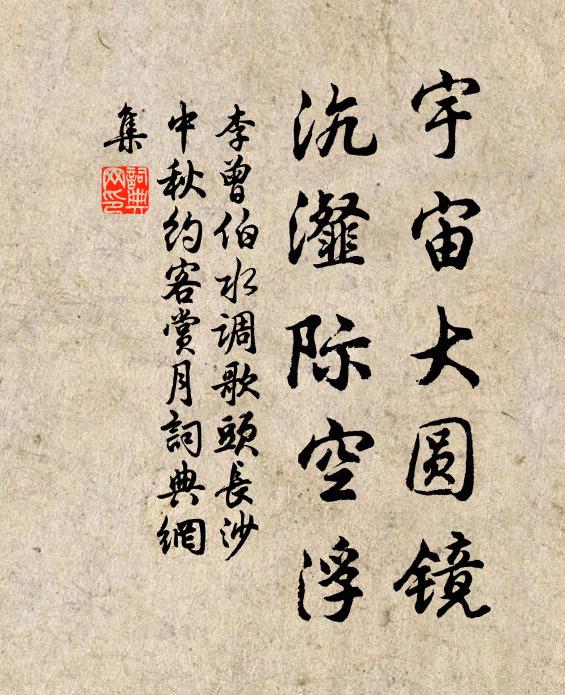 宇宙大圆镜
沆瀣际空浮
李曾伯水调歌頭長沙
中秋约客赏月詞典網
集
詞典网印